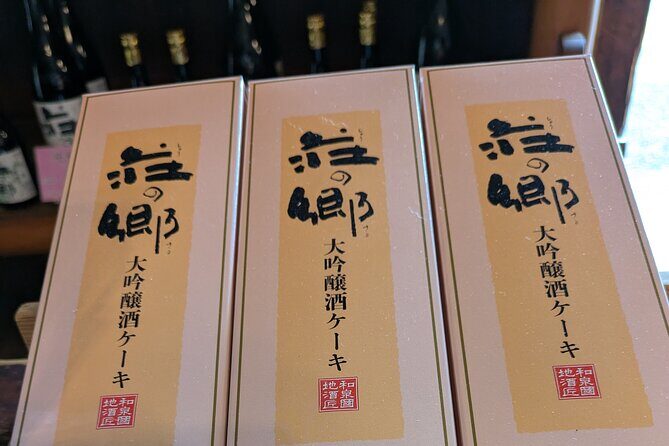 荘の郷
大吟醸酒ケーキ
和泉國
地酒匠
荘の郷
大吟醸酒ケーキ
和泉國
地酒匠
荘の郷
大吟醸酒ケーキ
和泉國
地酒匠